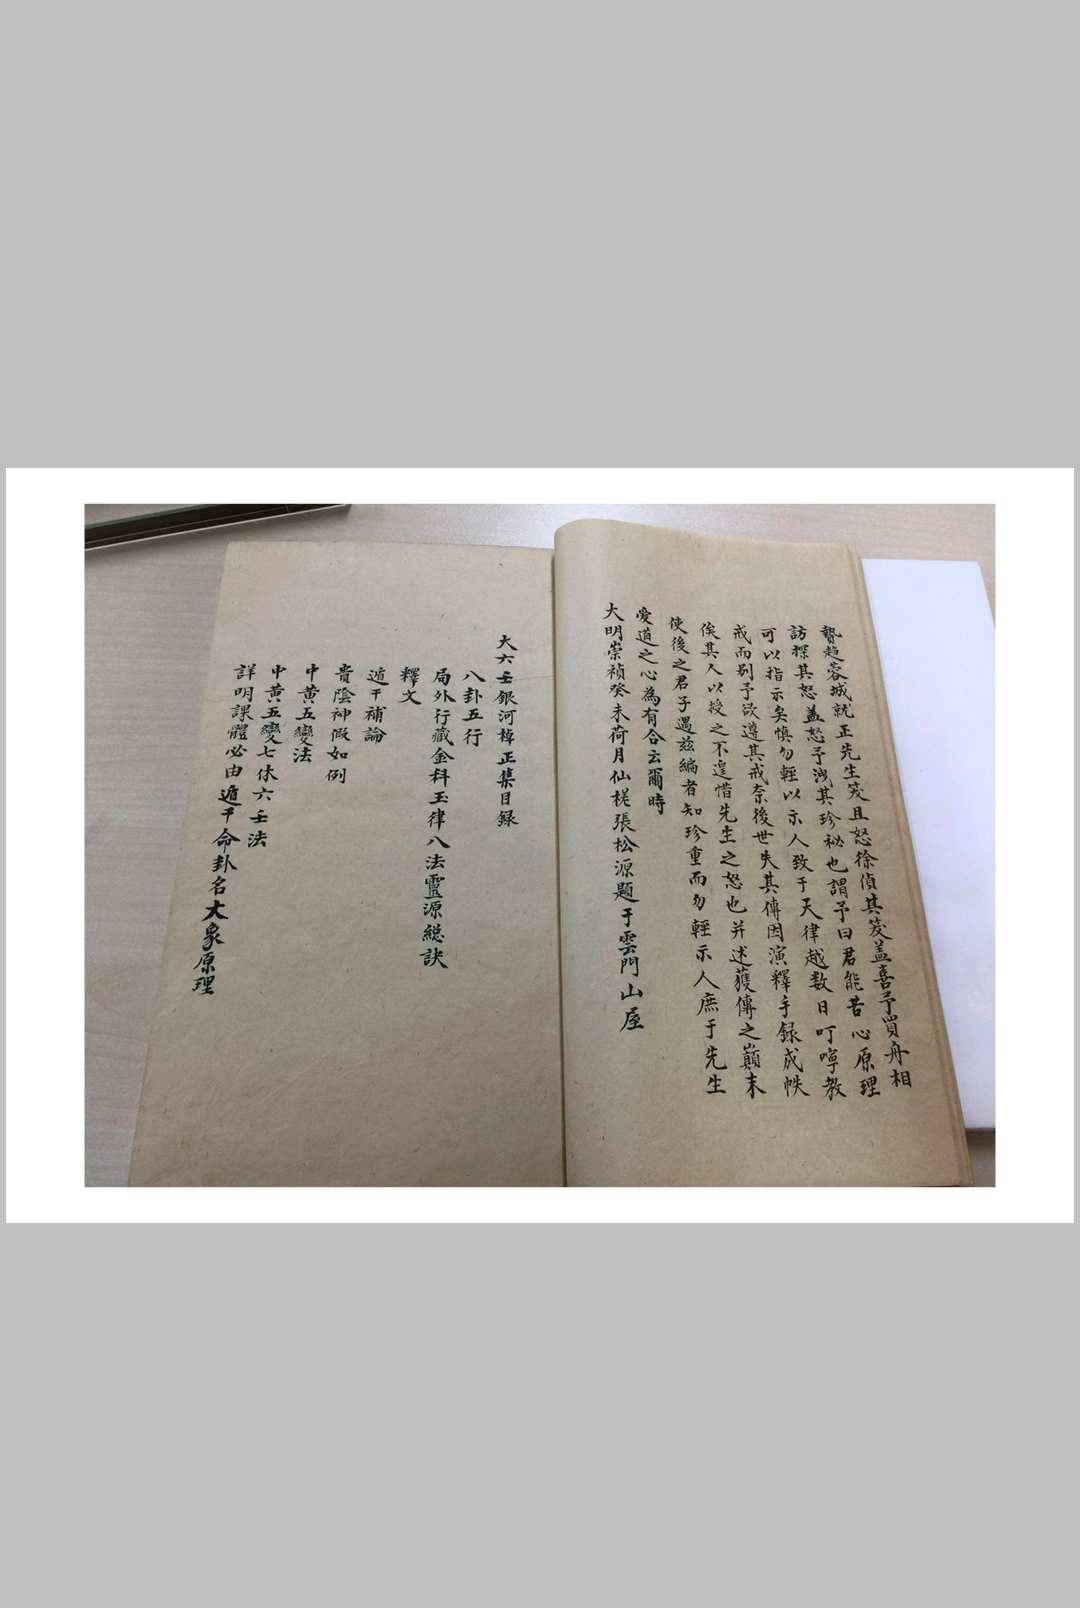 贄趋蓉城就正先生笺且怒徐偵其笺盖喜予買舟相
訪探其怒盖怒予洩其珍秘也謂予曰君能苦心原理
可以指示矣慎勿輕以示人致于天律越数日叮嚀教
戒而别予欲遵其戒奈後世失其傳因演釋手録成帙
俟其人以授之不遑惜先生之怒也并述獲傳之巔末
使後之君子遇兹編者知珍重而勿輕示人庶于先生
愛道之心為有合云爾時
大明崇禎癸未荷月仙槎張松源題于雲門山屋
大六壬銀河棹正集目録
八卦五行
局外行藏金科玉律八法靈源總訣
釋文
遁干補論
貴陰神假如例
中黄五變法
中黄五變七体六壬法
詳明課體必由遁干命卦名大象原理